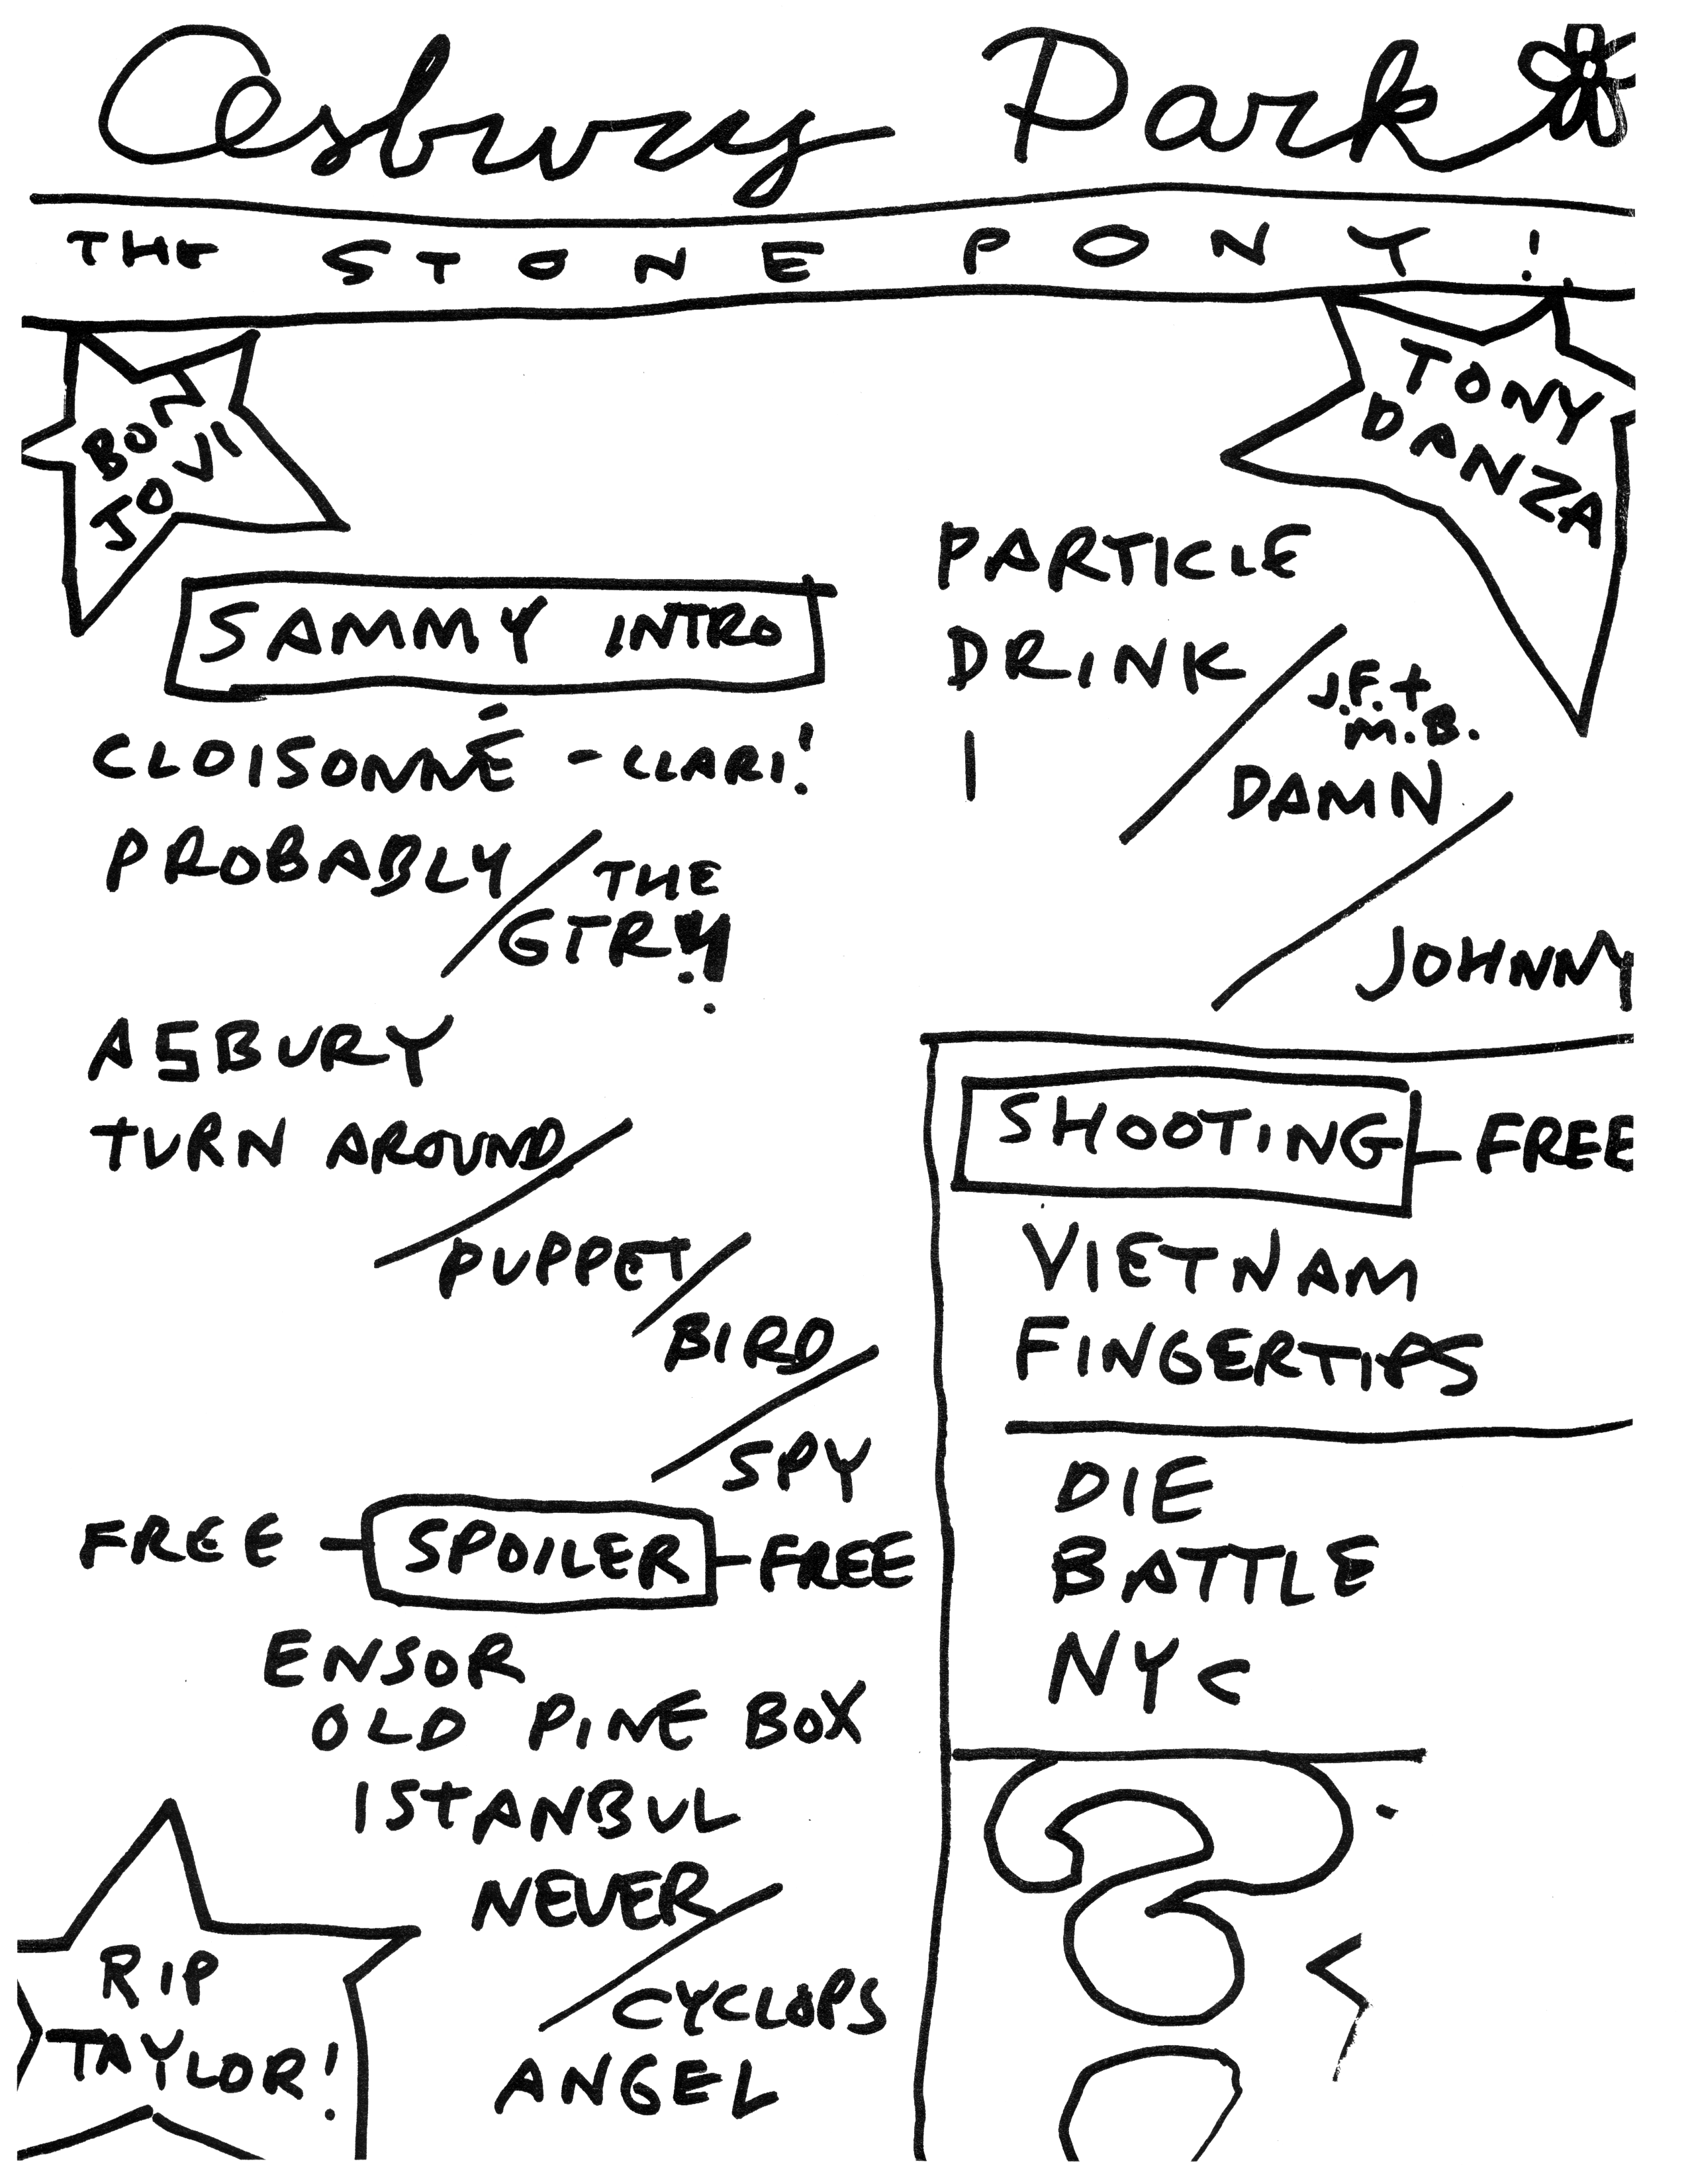 Asbury Park
THE STONE PONY!
BON
JOVI
TONY
DANZA
SAMMY INTRO
CLOISONNÉ - CLARI!
PROBABLY / THE
GTR!!
ASBURY
TURN AROUND /
PUPPET /
BIRD /
SPY
FREE - SPOILER - FREE
ENSOR
OLD PINE BOX
ISTANBUL
NEVER /
CYCLOPS
ANGEL
RIP
TAYLOR!
PARTICLE
DRINK / J.F. +
M.B.
I
DAMN /
JOHNNY
SHOOTING - FREE
VIETNAM
FINGERTIPS
DIE
BATTLE
NYC
?